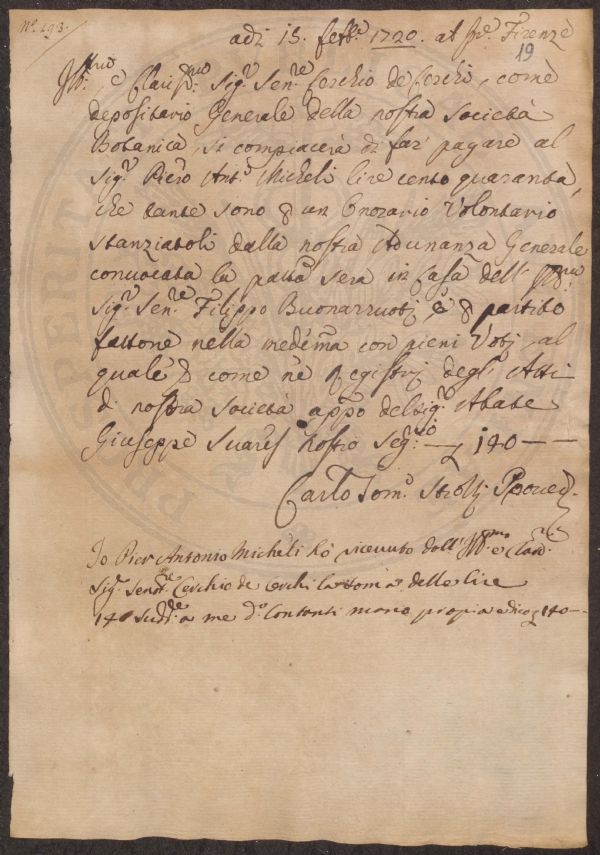 N.º 293.
adì 15. febb.º 1720. al fio. Firenze
19
Ill.mo, e Clariss.mo Sig.r Sen.re Cerchio de Cerchi, come
depositario Generale della nostra Società
Botanica, si compiacerà di far' pagare al
Sig.r Piero Ant.º Micheli lire cento quaranta,
che tante sono p un Onorario Volontario
stanziatoli dalla nostra Adunanza Generale
convocata la passa sera in Casa dell' Ill.mo
Sig.r Sen.re Filippo Buonarruotj e p partito
fattone nella medema con pieni Votj, al
quale p come ne Registrj degl' Atti
di nostra Società appo del Sig.r Abate
Giuseppe Suares nostro Seg.rio — 140 — —
Carlo Tom.º Strozzj Proved.
Io Pier Antonio Micheli hò ricevuto dall' Ill.mo e Clar.
Sig.r Senat.re Cerchio de Cerchi la soma delle lire
140 Sudd.e a me d.º Contanti mano propia e dico 140 —